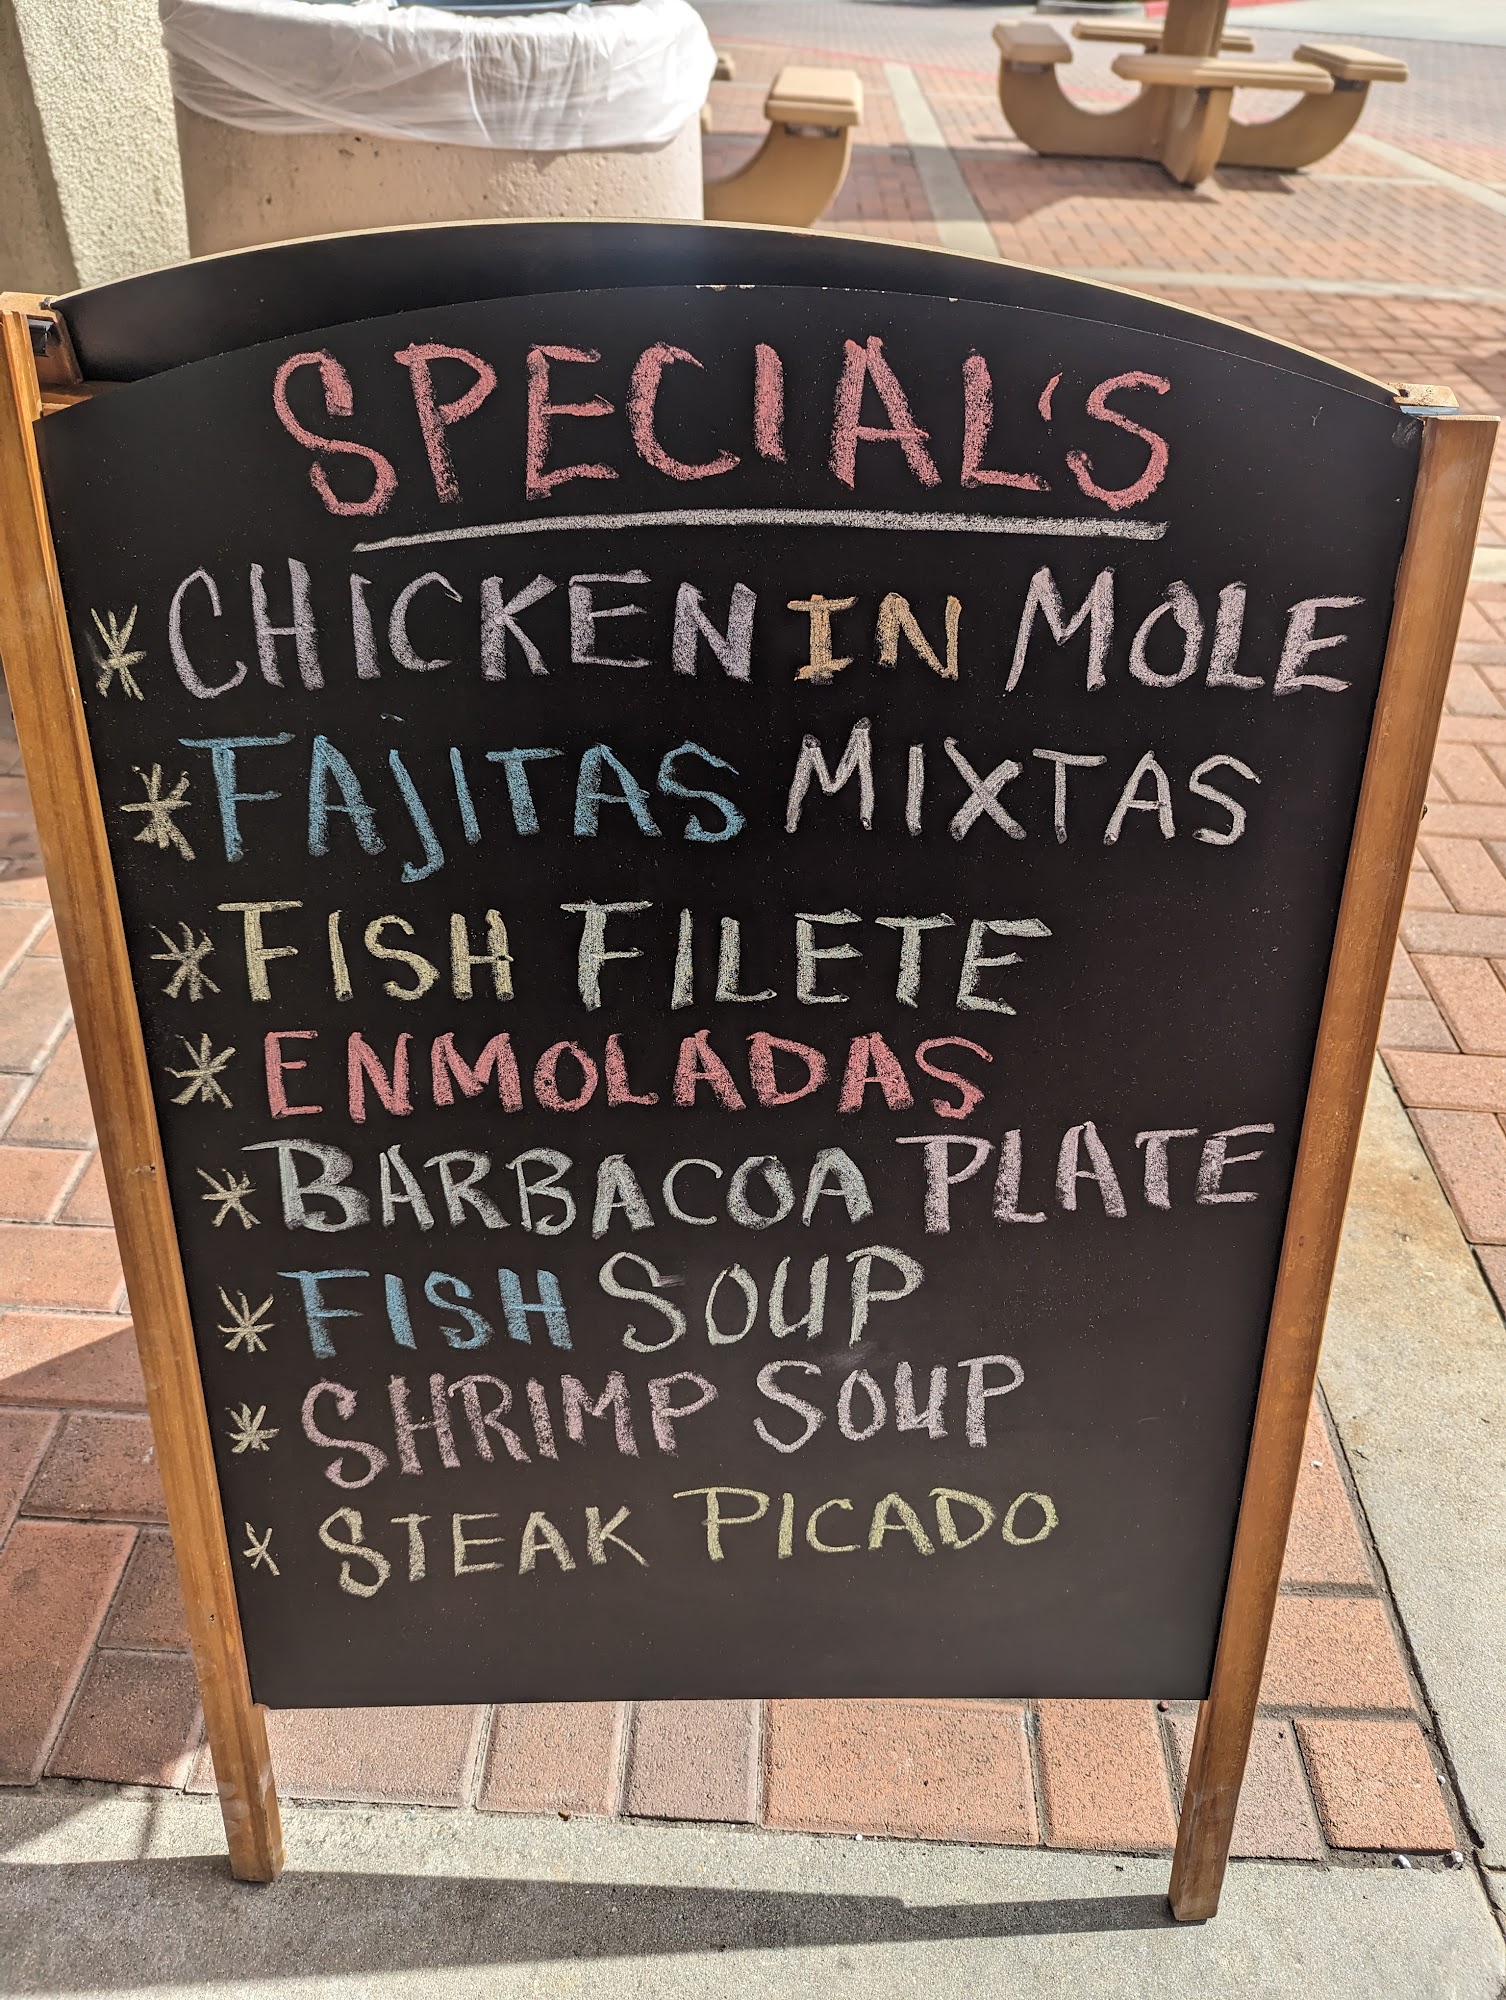 SPECIAL'S
* CHICKEN IN MOLE
* FAJITAS MIXTAS
* FISH FILETE
* ENMOLADAS
* BARBACOA PLATE
* FISH SOUP
* SHRIMP SOUP
* STEAK PICADO